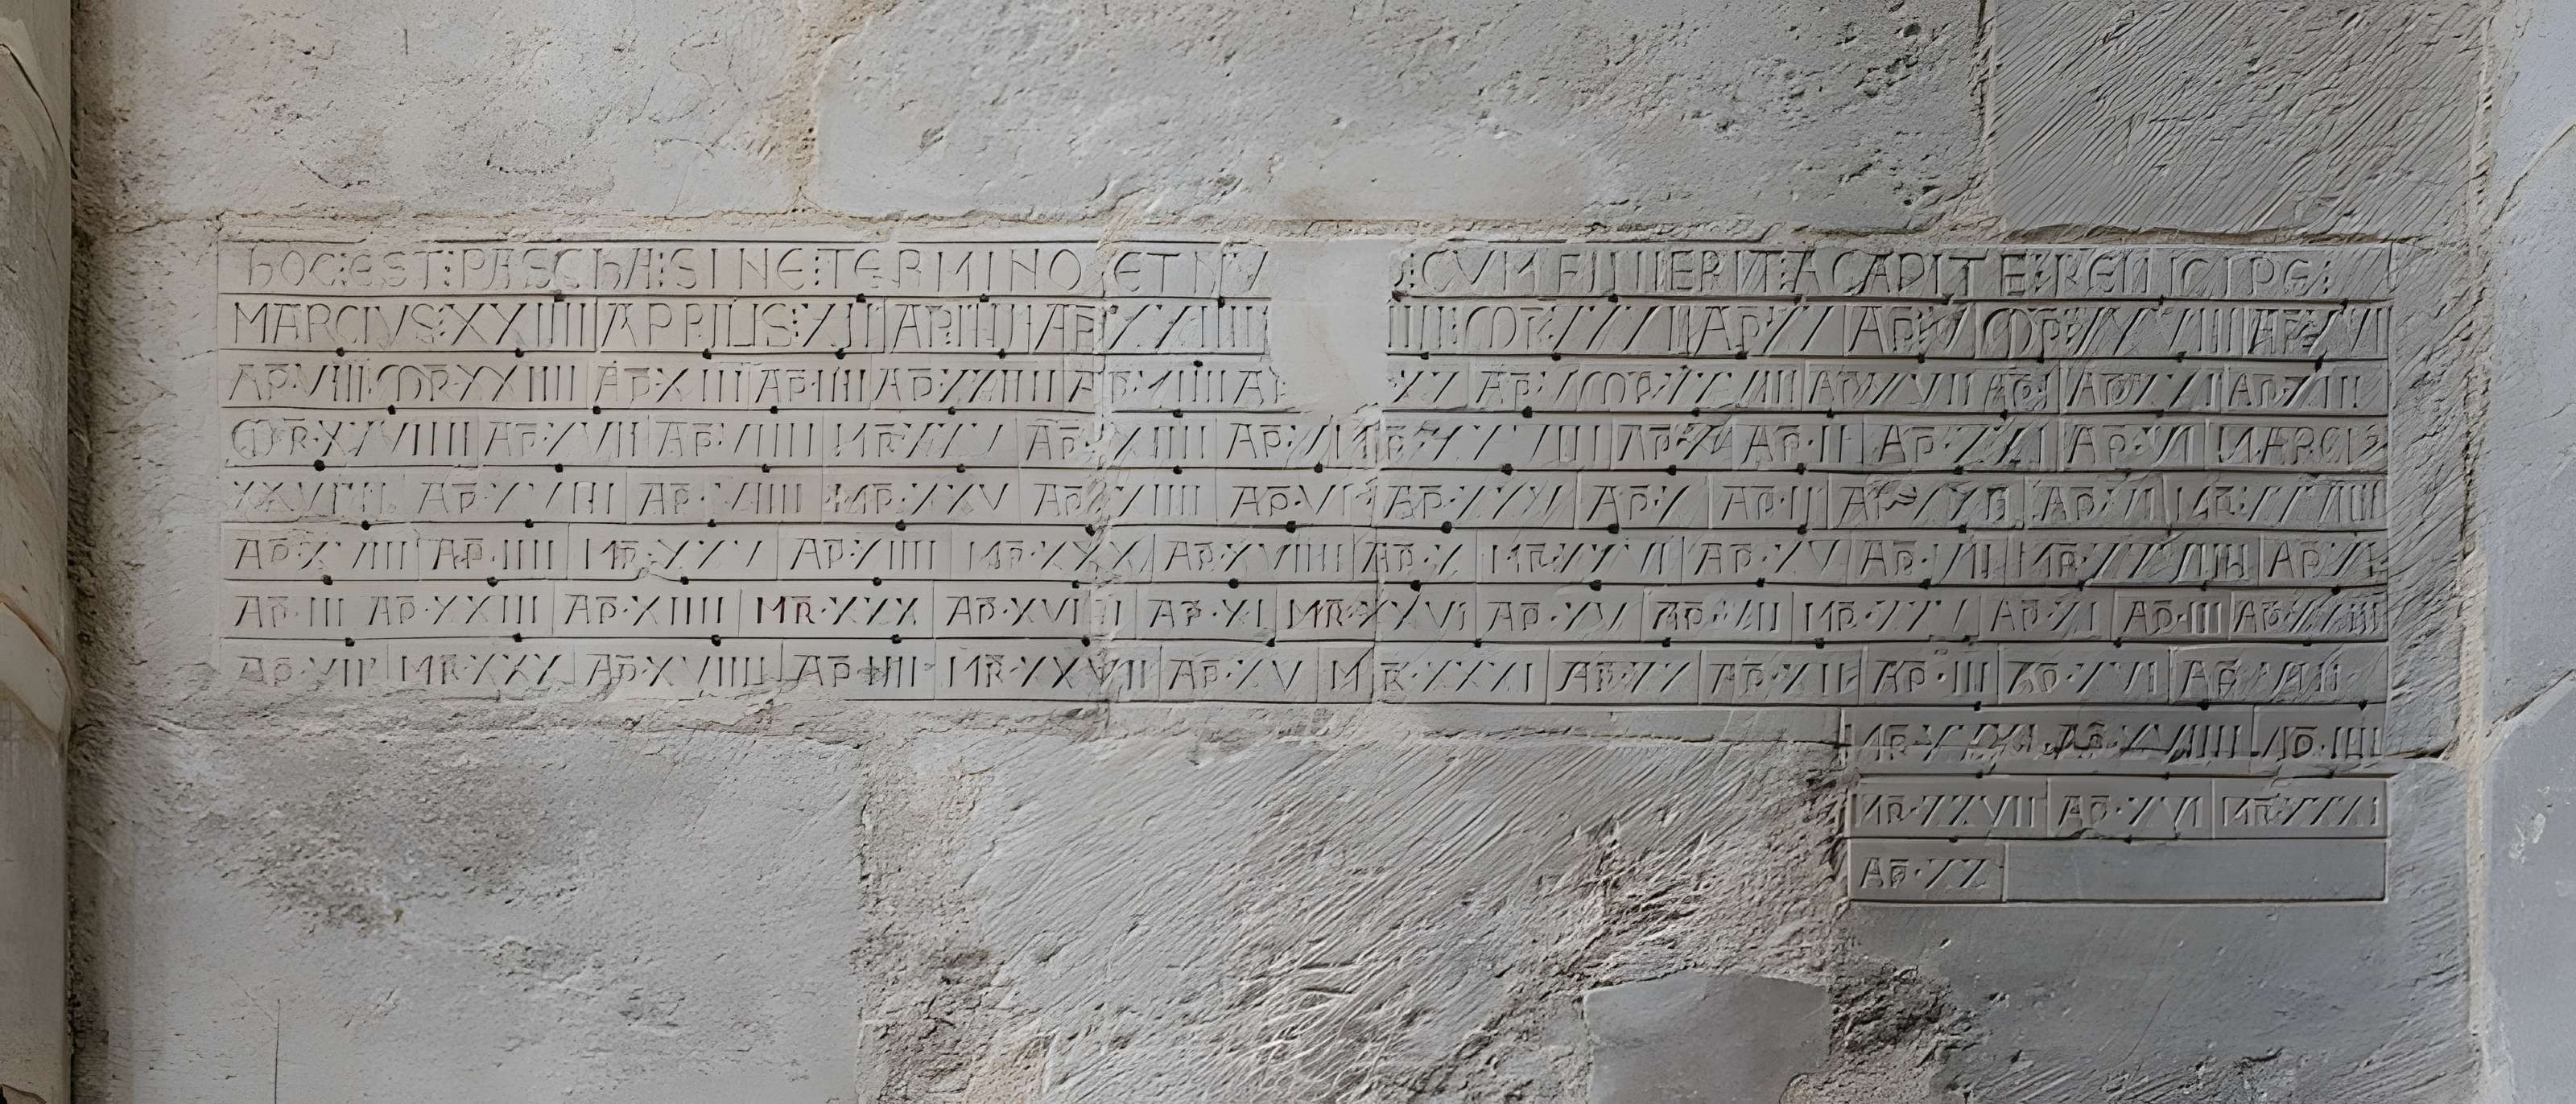 hOC:EST:PASChA:SINE:TERMINO:ET NV :CVM FINIERIT:A CAPITE:REINCIPE:
MARCIVS:XXIIII APRILIS:XII AP:IIII AP:XXIIII IIII:MR:XXXI AP:XX AP:V MR:XXVIII AP:XVI
AP·VIII MR·XXIIII AP·XIII AP·IIII AP·XXIIII AP·VIIII AP XX AP·V MR·XXVIII AP·XVII AP·I AP·XXI AP·XIII
MR·XXVIIII AP·XVII AP·VIIII MR·XXV AP·XIIII AP·VI MR·XXVIIII AP·X AP·II AP·XXI AP·VI MARCIS
XXVIIII AP·XVIII AP·VIIII MR·XXV AP·XIIII AP·VI AP·XXV AP·X AP·II AP·XXII AP·VI MR·XXVIIII
AP·XVIIII AP·IIII MR·XXV AP·XIIII MR·XXX AP·XVIIII AP·X MR·XXVI AP·XV AP·VII MR·XXVIIII AP·XI
AP·III AP·XXIII AP·XIIII MR·XXX AP·XVIII AP·XI MR·XXVI AP·XV AP·VII MR·XXX AP·XI AP·III AP·XXIII
AP·VII MR·XXX AP·XVIIII AP·IIII MR·XXVII AP·XV MR·XXXI AP·XX AP·XII AP·III AP·XVI AP·VIII
MR·XXXI AP·XVIIII AP·IIII
MR·XXVII AP·XVI MR·XXXI
AP·XX